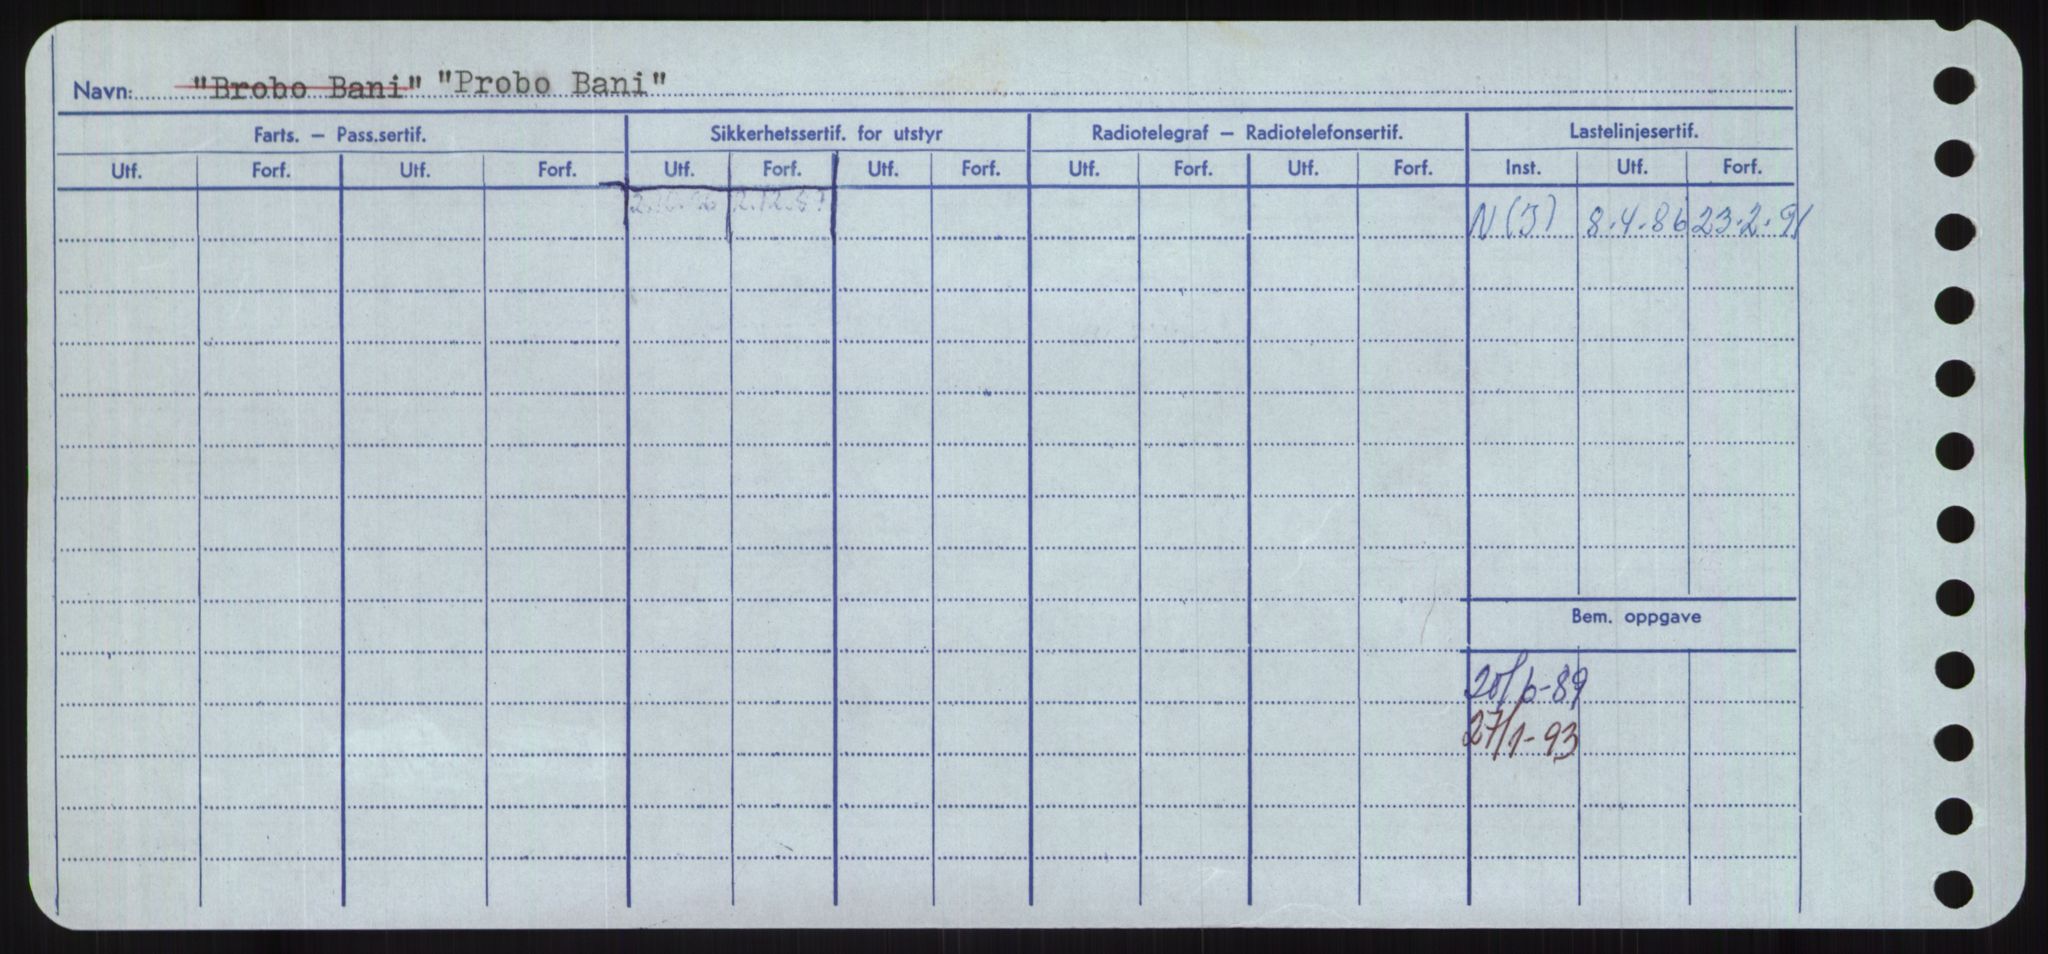 Navn: "Brobo Bani" "Probo Bani"
Farts. – Pass.sertif. Sikkerhetssertif. for utstyr Radiotelegraf – Radiotelefonsertif. Lastelinjesertif.
Utf. Forf. Utf. Forf. Utf. Forf. Utf. Forf. Utf. Forf. Utf. Forf. Inst. Utf. Forf.
2.12.87 N(I) 8.4.86 23.2.91
Bem. oppgave
20/6-89
27/1-93